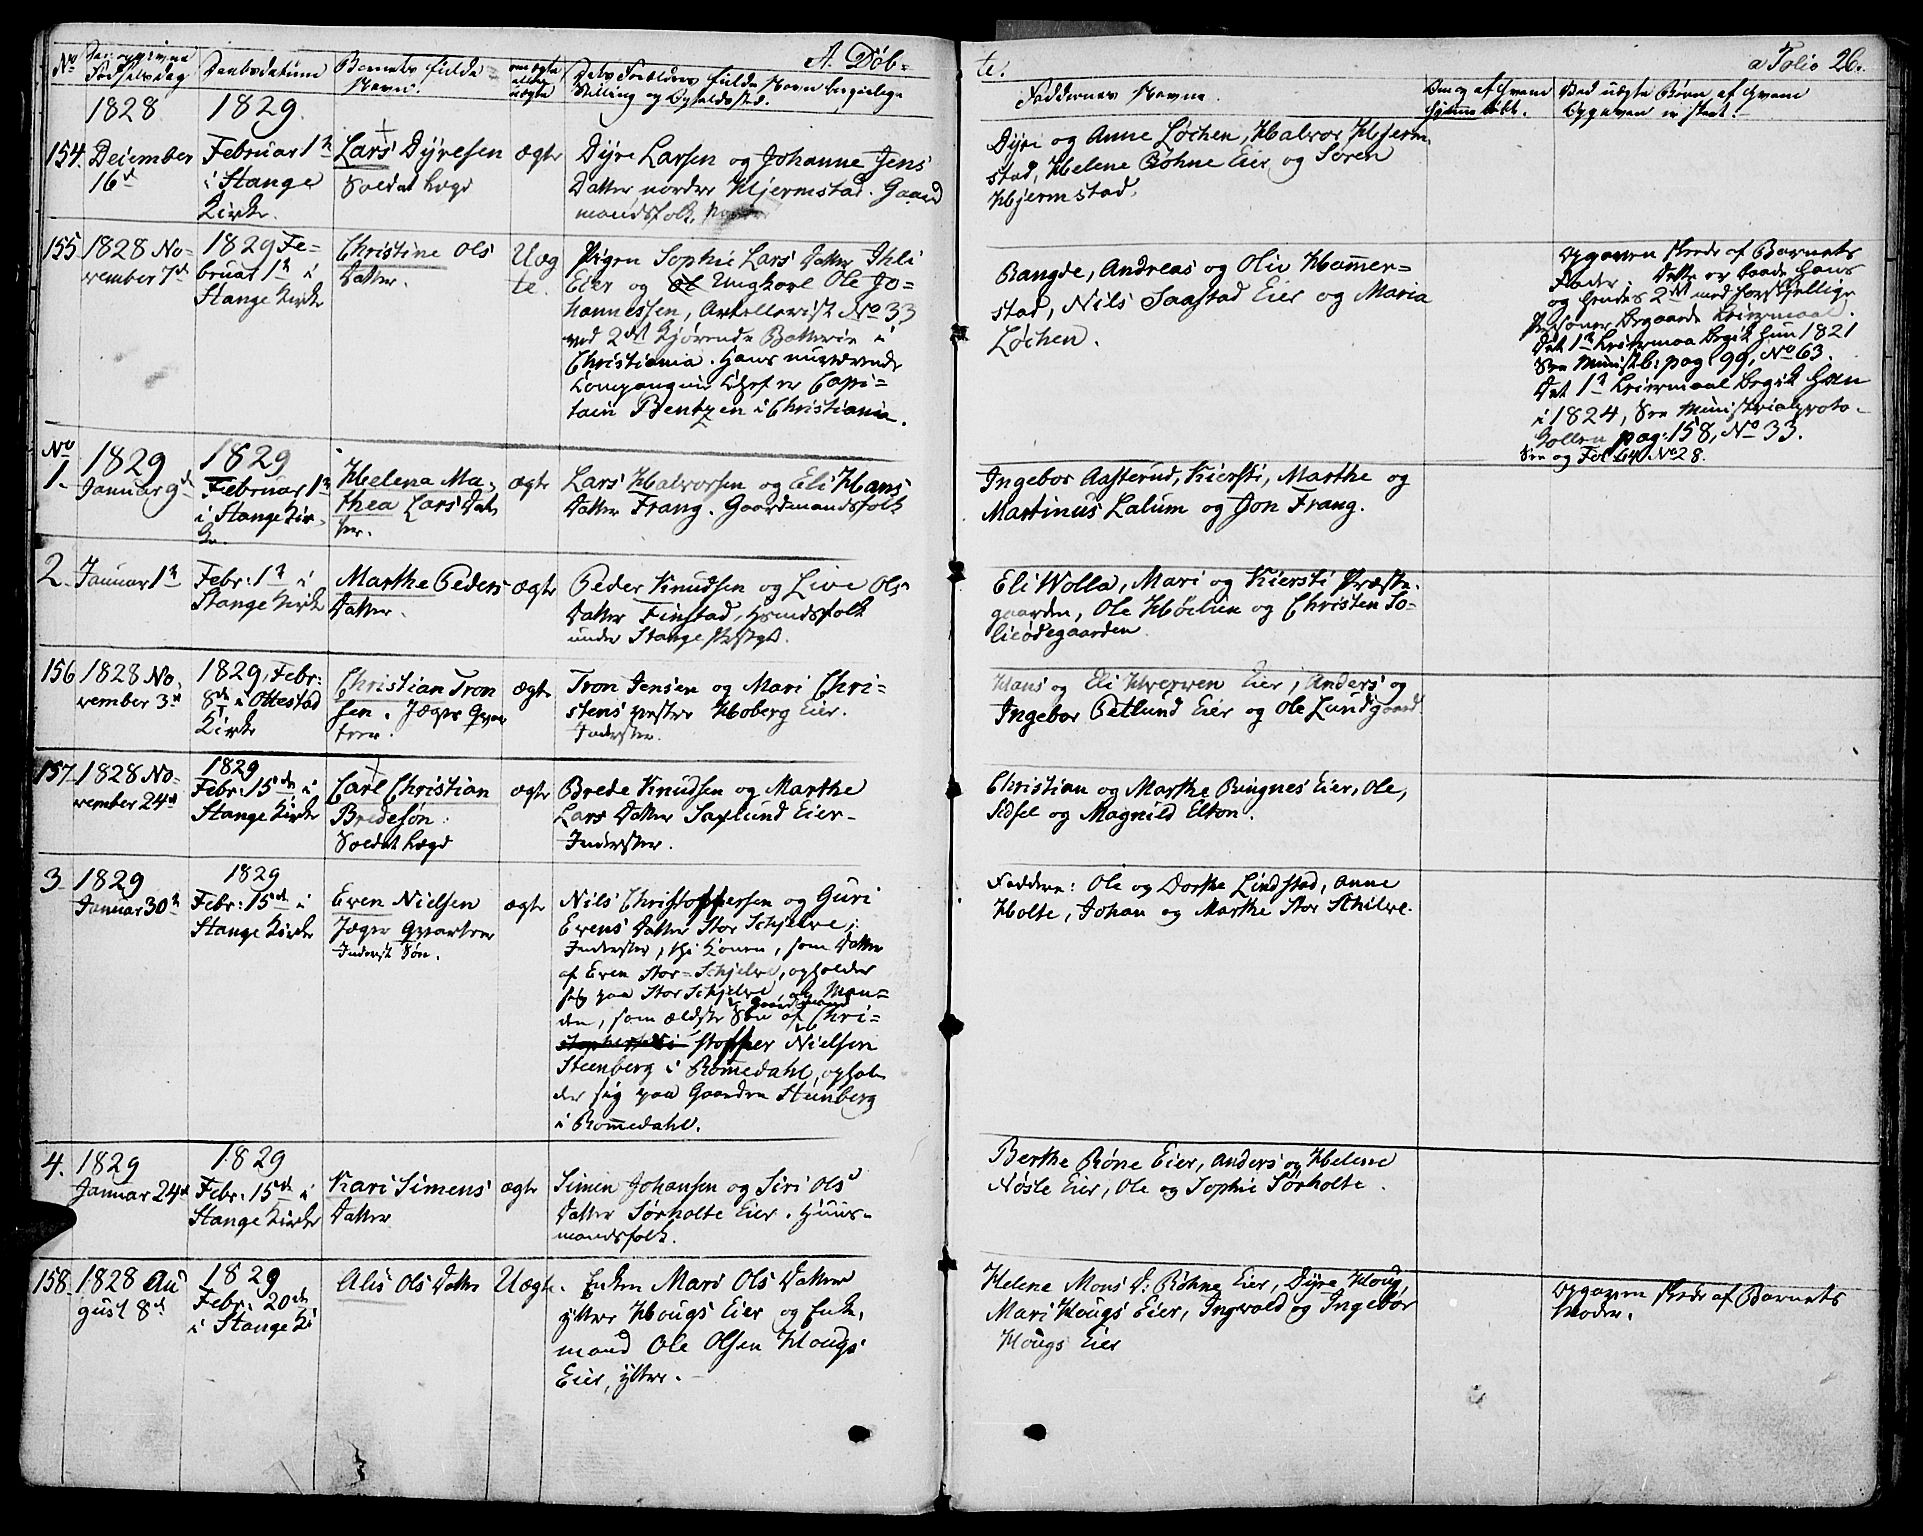 A. Døb-
te.
a Folio 26.
No
Den opgivne
Fødselsdag
Daabsdatum
Barnets fulde
Navn.
om ægte
eller
uægte
Dets Forældres fulde Navn borgerlige
Stilling og Opholdssted.
Faddernes Navne.
Om og af hvem
hjemmedøbt.
Ved uægte Børn af hvem
Opgaven er skeet.
1828
1829
154. December
16d
Februar 1n
i Stange
Kirke.
Lars Dyresen
Soldat Lægd
ægte
Dyre Larsen og Johanne Jens
Datter nordre Hjermstad. Gaard
mandsfolk.
Dyre og Anne Løchen, Halvor Hjerm
stad, Helene Røhne Eier og Soren
Hjermstad.
155
1828 No-
vember 7d
1829 Fe-
bruar 1n i
Stange Kirke
Christine Ols
Datter.
Uæg
te
Pigen Sophie Lars Datter Ihli
Eier og Ungkarl Ole Jo-
hannessen, Artellerist No 33
ved 2det kjørende Batterie i
Christiania. Hans nuværende
Compagnie Chef er Capi-
tain Bentzen i Christiania.
Bangde, Andreas og Oliv Hamer-
stad, Nils Saastad Eier og Maria
Løchen.
Opgaven skede af Barnets
Fader. Dette er baade hans
og hendes 2det med forskjellige
Personer begaaede Leiermaal.
Det 1n Leiermaal begik hun 1821
See Ministb: pag 99, No 63.
Det 1n Leiermaal begik han
i 1824, See Ministrialproto-
collen pag: 158, No 33.
See og Fol 64 No 28.
No
1.
1829
Januar 9d
1829
Februar 1n
i Stange Kir-
ke.
Helena Ma-
thea Lars Dat-
ter.
ægte
Lars Halvorsen og Eli Hans
Datter Frang. Gaardmandsfolk
Ingebor Aasterud, Kiersti, Marthe og
Martinus Lalum og Jon Frang.
2.
Januar 1n
Febr: 1n i
Stange Kirke
Marthe Peders
Datter.
ægte
Peder Knudsen og Live Ols
Datter Finstad, Huusfolk
under Stange Præstgd.
Eli Wolla, Mari og Kiersti Præste-
gaarden, Ole Høelien og Christen So-
lieødegaarden
156
1828 No-
vember 3d
1829, Febr:
8de i Ottestad
Kirke
Christian Tron
sen. Jæger Qvar
teer.
ægte
Tron Jensen og Mari Chri-
stens vestre Hoberg Eier.
Inderster.
Hans og Eli Hverven Eier, Anders og
Ingebor Petlund Eier og Ole Lundgaard
157
1828 No-
vember 24d
1829
Febr: 15de i
Stange Kirke
Carl Christian
Bredesøn
Soldat Lægd
ægte
Brede Knudsen og Marthe
Lars Datter Saxlund Eier-
Inderster.
Christian og Marthe Ringnes Eier, Ole,
Sidsel og Magnild Elton.
3
1829
Januar 30n
1829
Febr: 15de i
Stange Kirke
Even Nielsen
Jæger Qvarteer
Inderst Søn.
ægte
Nils Christoffersen og Guri
Evens Datter Stor Schjelve;
Inderster, thi Konen, som Datter
af Even Stor-Schjelve, opholder
sig paa Stor Schjelve, og Man-
den, som ældste Søn af Gaardmand Chri-
stoffer Nielsen
Steenberg i Romedahl, ophol-
der sig paa Gaarden Steenberg
i Romedahl.
Faddere: Ole og Dorthe Lindstad, Anne
Holte, Johan og Marthe Stor Schilve.
4.
1829
Januar 24d
1829
Febr: 15de i
Stange Kirke
Kari Simens
Datter
ægte
Simen Johansen og Siri Ols
Datter Sørholte Eier. Huus-
mandsfolk.
Berthe Røne Eier, Anders og Helene
Nøsle Eier, Ole og Sophie Sørholte.
158
1828 Au
gust 8de
1829
Febr. 20de
i Stange Ki
Alis Ols Datter
Uægte.
Enken Mari Ols Datter
yttre Hougs Eier og Enke-
mand Ole Olsen Hougs
Eier, yttre.
Helene Mons D: Røhne Eier, Dyre Houg
Mari Hougs Eier, Ingvold og Ingebør
Hougs Eier
Opgaven skede af Barnets
Moder.